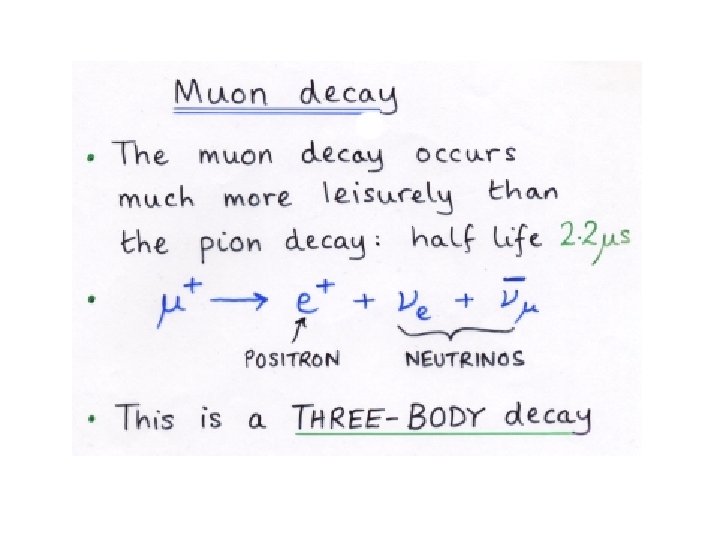 Muon decay
• The muon decay occurs
much more leisurely than
the pion decay: half life 2.2μs
• μ⁺ → e⁺ + νₑ + ν̄_μ
POSITRON NEUTRINOS
• This is a THREE-BODY decay